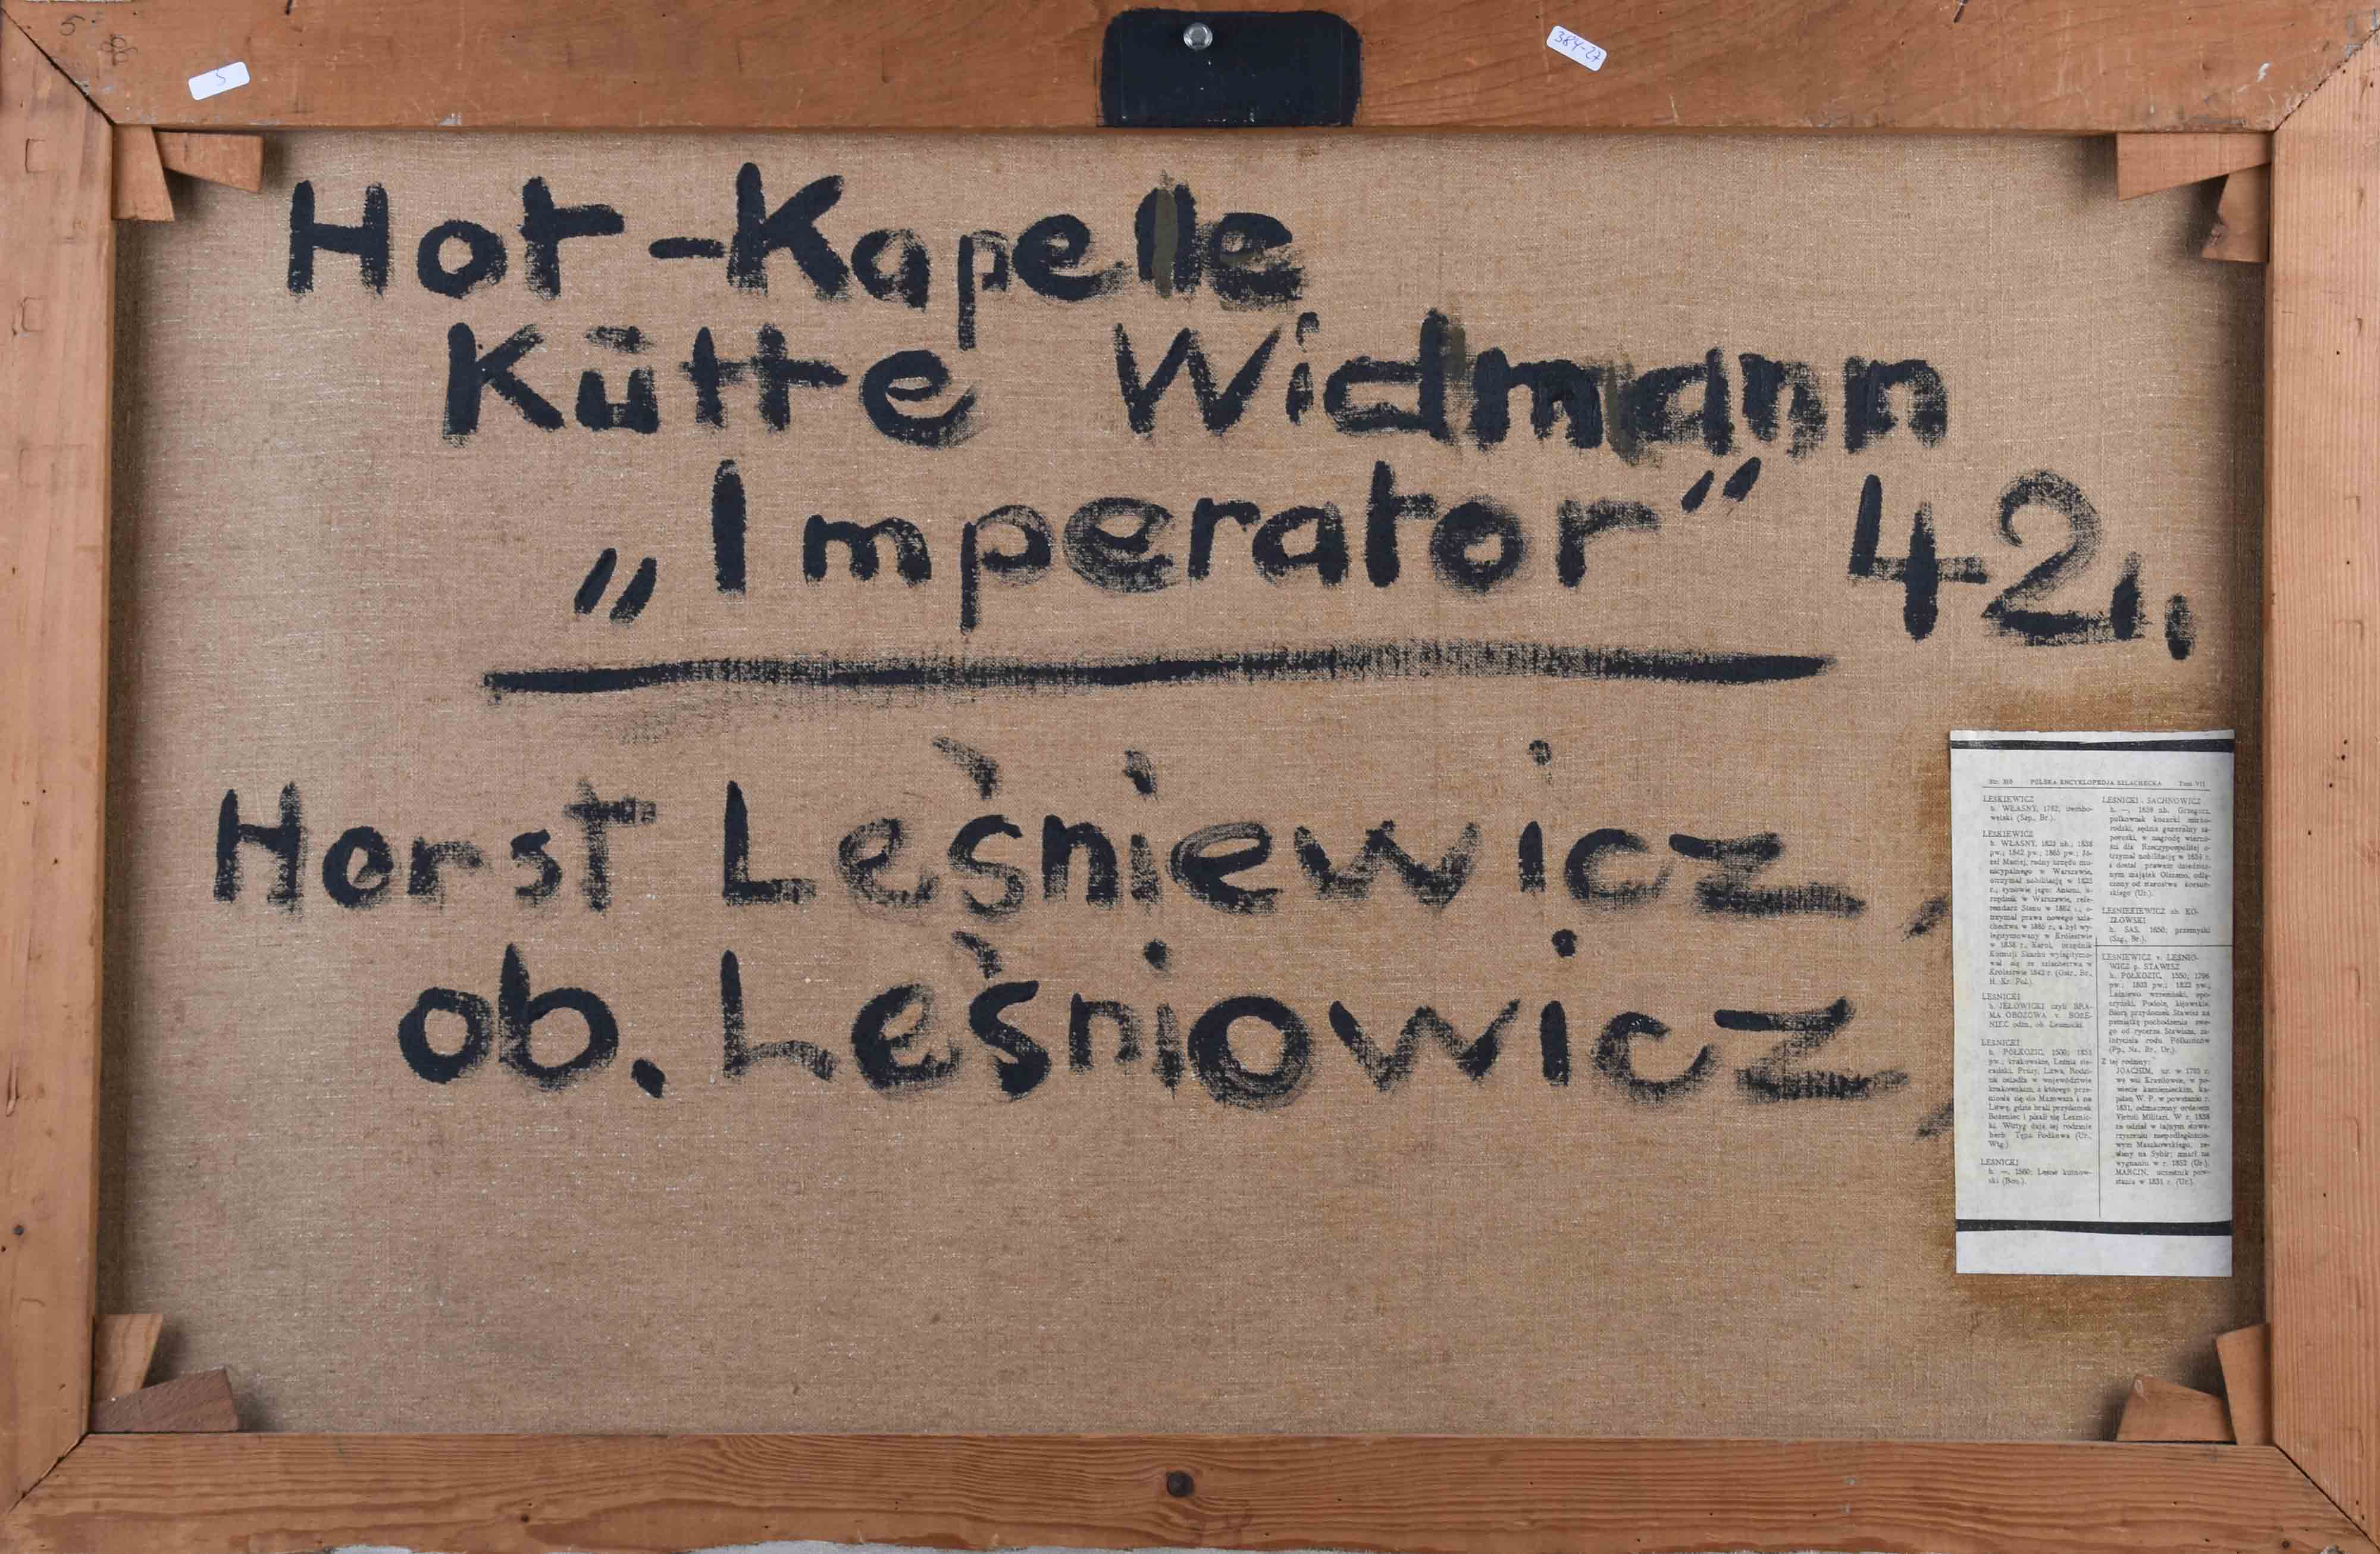 5
5
384-27
Hot-Kapelle
Kütte Widmann
„Imperator" 42,,
Horst Leśniewicz,
ob. Leśniowicz,
Str. 319 POLSKA ENCYKLOPEDJA SZLACHECKA Tom VII
LESKIEWICZ
h. WŁASNY, 1782, trembo-
welski (Sap., Br.).
LESKIEWICZ
h. WŁASNY, 1823 nb.; 1838
pw.; 1842 pw.; 1865 pw.; Jó-
zef Maciej, radny urzędu mu-
nicypalnego w Warszawie,
otrzymał nobilitację w 1823
r., synowie jego: Antoni, u-
rzędnik w Warszawie, refe-
rendarz Stanu w 1862 r., o-
trzymał prawa nowego szla-
chectwa w 1865 r., a był wy-
legitymowany w Królestwie
w 1838 r., Karol, urzędnik
Komisji Skarbu wylegitymo-
wał się ze szlachectwa w
Królestwie 1842 r. (Ostr., Br.,
H. Kr. Pol.).
LEŚNICKI
h. JEŁOWICKI czyli BRA-
MA OBOZOWA v. BOŻE-
NIEC odm., ob. Lesznicki.
LEŚNICKI
h. PÓŁKOZIC, 1500; 1851
pw.; krakowskie, Leśnia sie-
radzki, Prusy, Litwa. Rodzi-
na osiadła w województwie
krakowskim, z którego prze-
niosła się do Mazowsza i na
Litwę, gdzie brali przydomek
Bożeniec i pisali się Lesznic-
ki. Wittyg daje tej rodzinie
herb Typa Podkowa (Ur.,
Wtg.).
LEŚNICKI
h. —, 1580; Leśne kutnow-
ski (Bon.).
LEŚNICKI - SACHNOWICZ
h. —, 1659 nb. Grzegorz,
pułkownik kozacki mirho-
rodzki, sędzia generalny za-
poroski, w nagrodę wierno-
ści dla Rzeczypospolitej o-
trzymał nobilitację w 1659 r.
i dostał prawem dziedzicz-
nym majątek Olszano, odłą-
czony od starostwa korsuń-
skiego (Ur.).
LEŚNIEKIEWICZ ob. KO-
ZŁOWSKI
h. SAS, 1650; przemyski
(Sag., Br.).
LEŚNIEWICZ v. LEŚNIO-
WICZ p. STAWISZ
h. PÓŁKOZIC, 1550; 1796
pw.; 1803 pw.; 1823 pw.,
Leśniewo wrzesiński, opo-
czyński, Podole, kijowskie.
Biorą przydomek Stawisz na
pamiątkę pochodzenia swe-
go od rycerza Stawisza, za-
łożyciela rodu Półkoziców
(Pp., Ns., Br., Ur.).
Z tej rodziny:
JOACHIM, ur. w 1795 r.
we wsi Krzeiłowce, w po-
wiecie kamienieckim, ka-
pitan W. P. w powstaniu r.
1831, odznaczony orderem
Virtuti Militari. W r. 1838
za udział w tajnym stowa-
rzyszeniu niepodległościo-
wym Maszkowskiego, ze-
słany na Sybir; zmarł na
wygnaniu w r. 1852 (Ur.).
MARCIN, uczestnik pow-
stania w 1831 r. (Ur.).